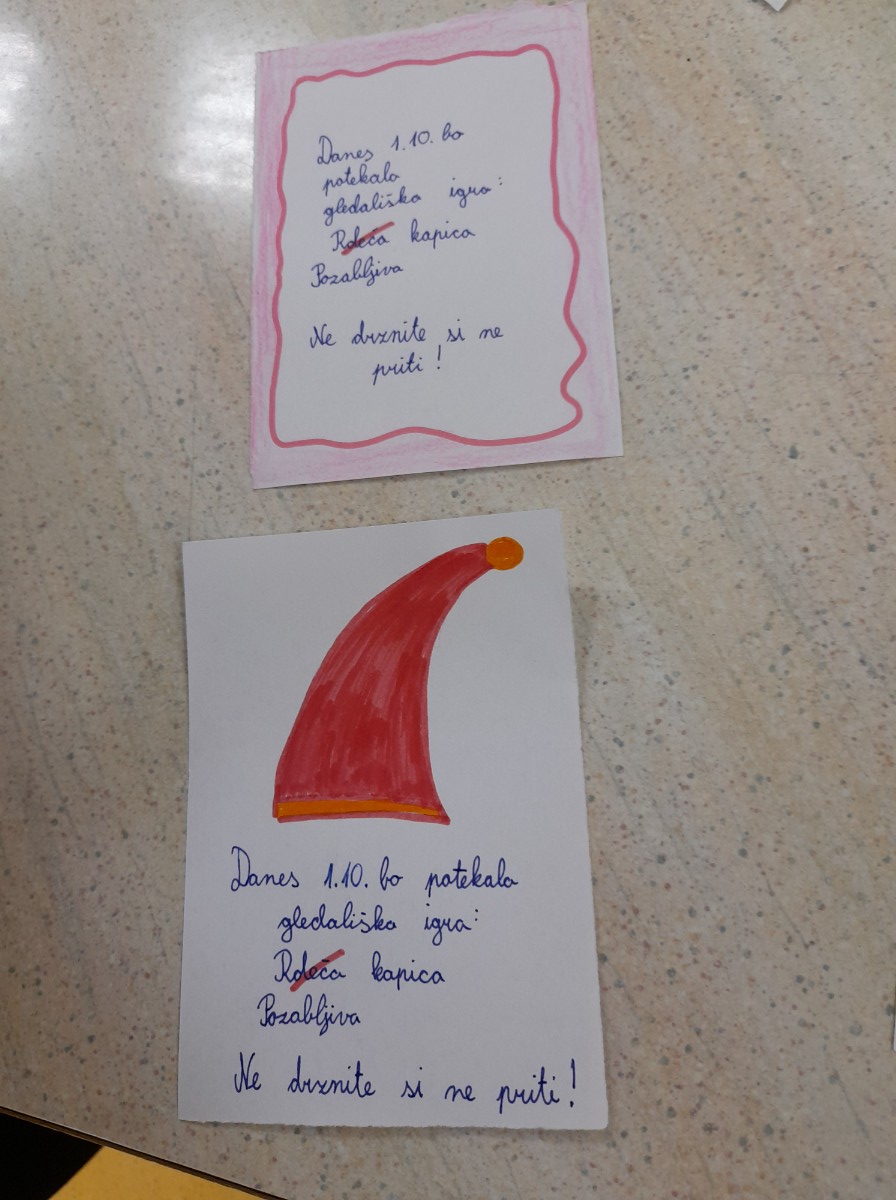 Danes 1.10. bo
potekala
gledališka igra:
Rdeča kapica
Pozabljiva
Ne drznite si ne
priti!
Danes 1.10. bo potekala
gledališka igra:
Rdeča kapica
Pozabljiva
Ne drznite si ne priti!